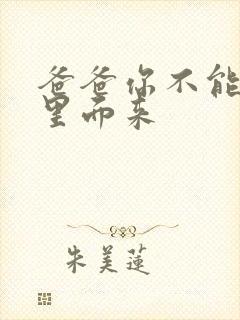 爸爸你不能
里而来
朱美莲